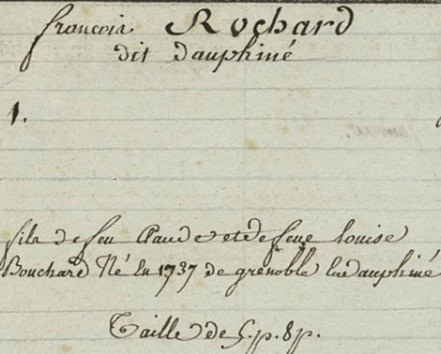 françois Rochard
dit dauphiné
1.
fils de feu Claude et de feue louise
Bouchard Né En 1737 de grenoble En dauphiné
Taille de 5. p. 8 p.